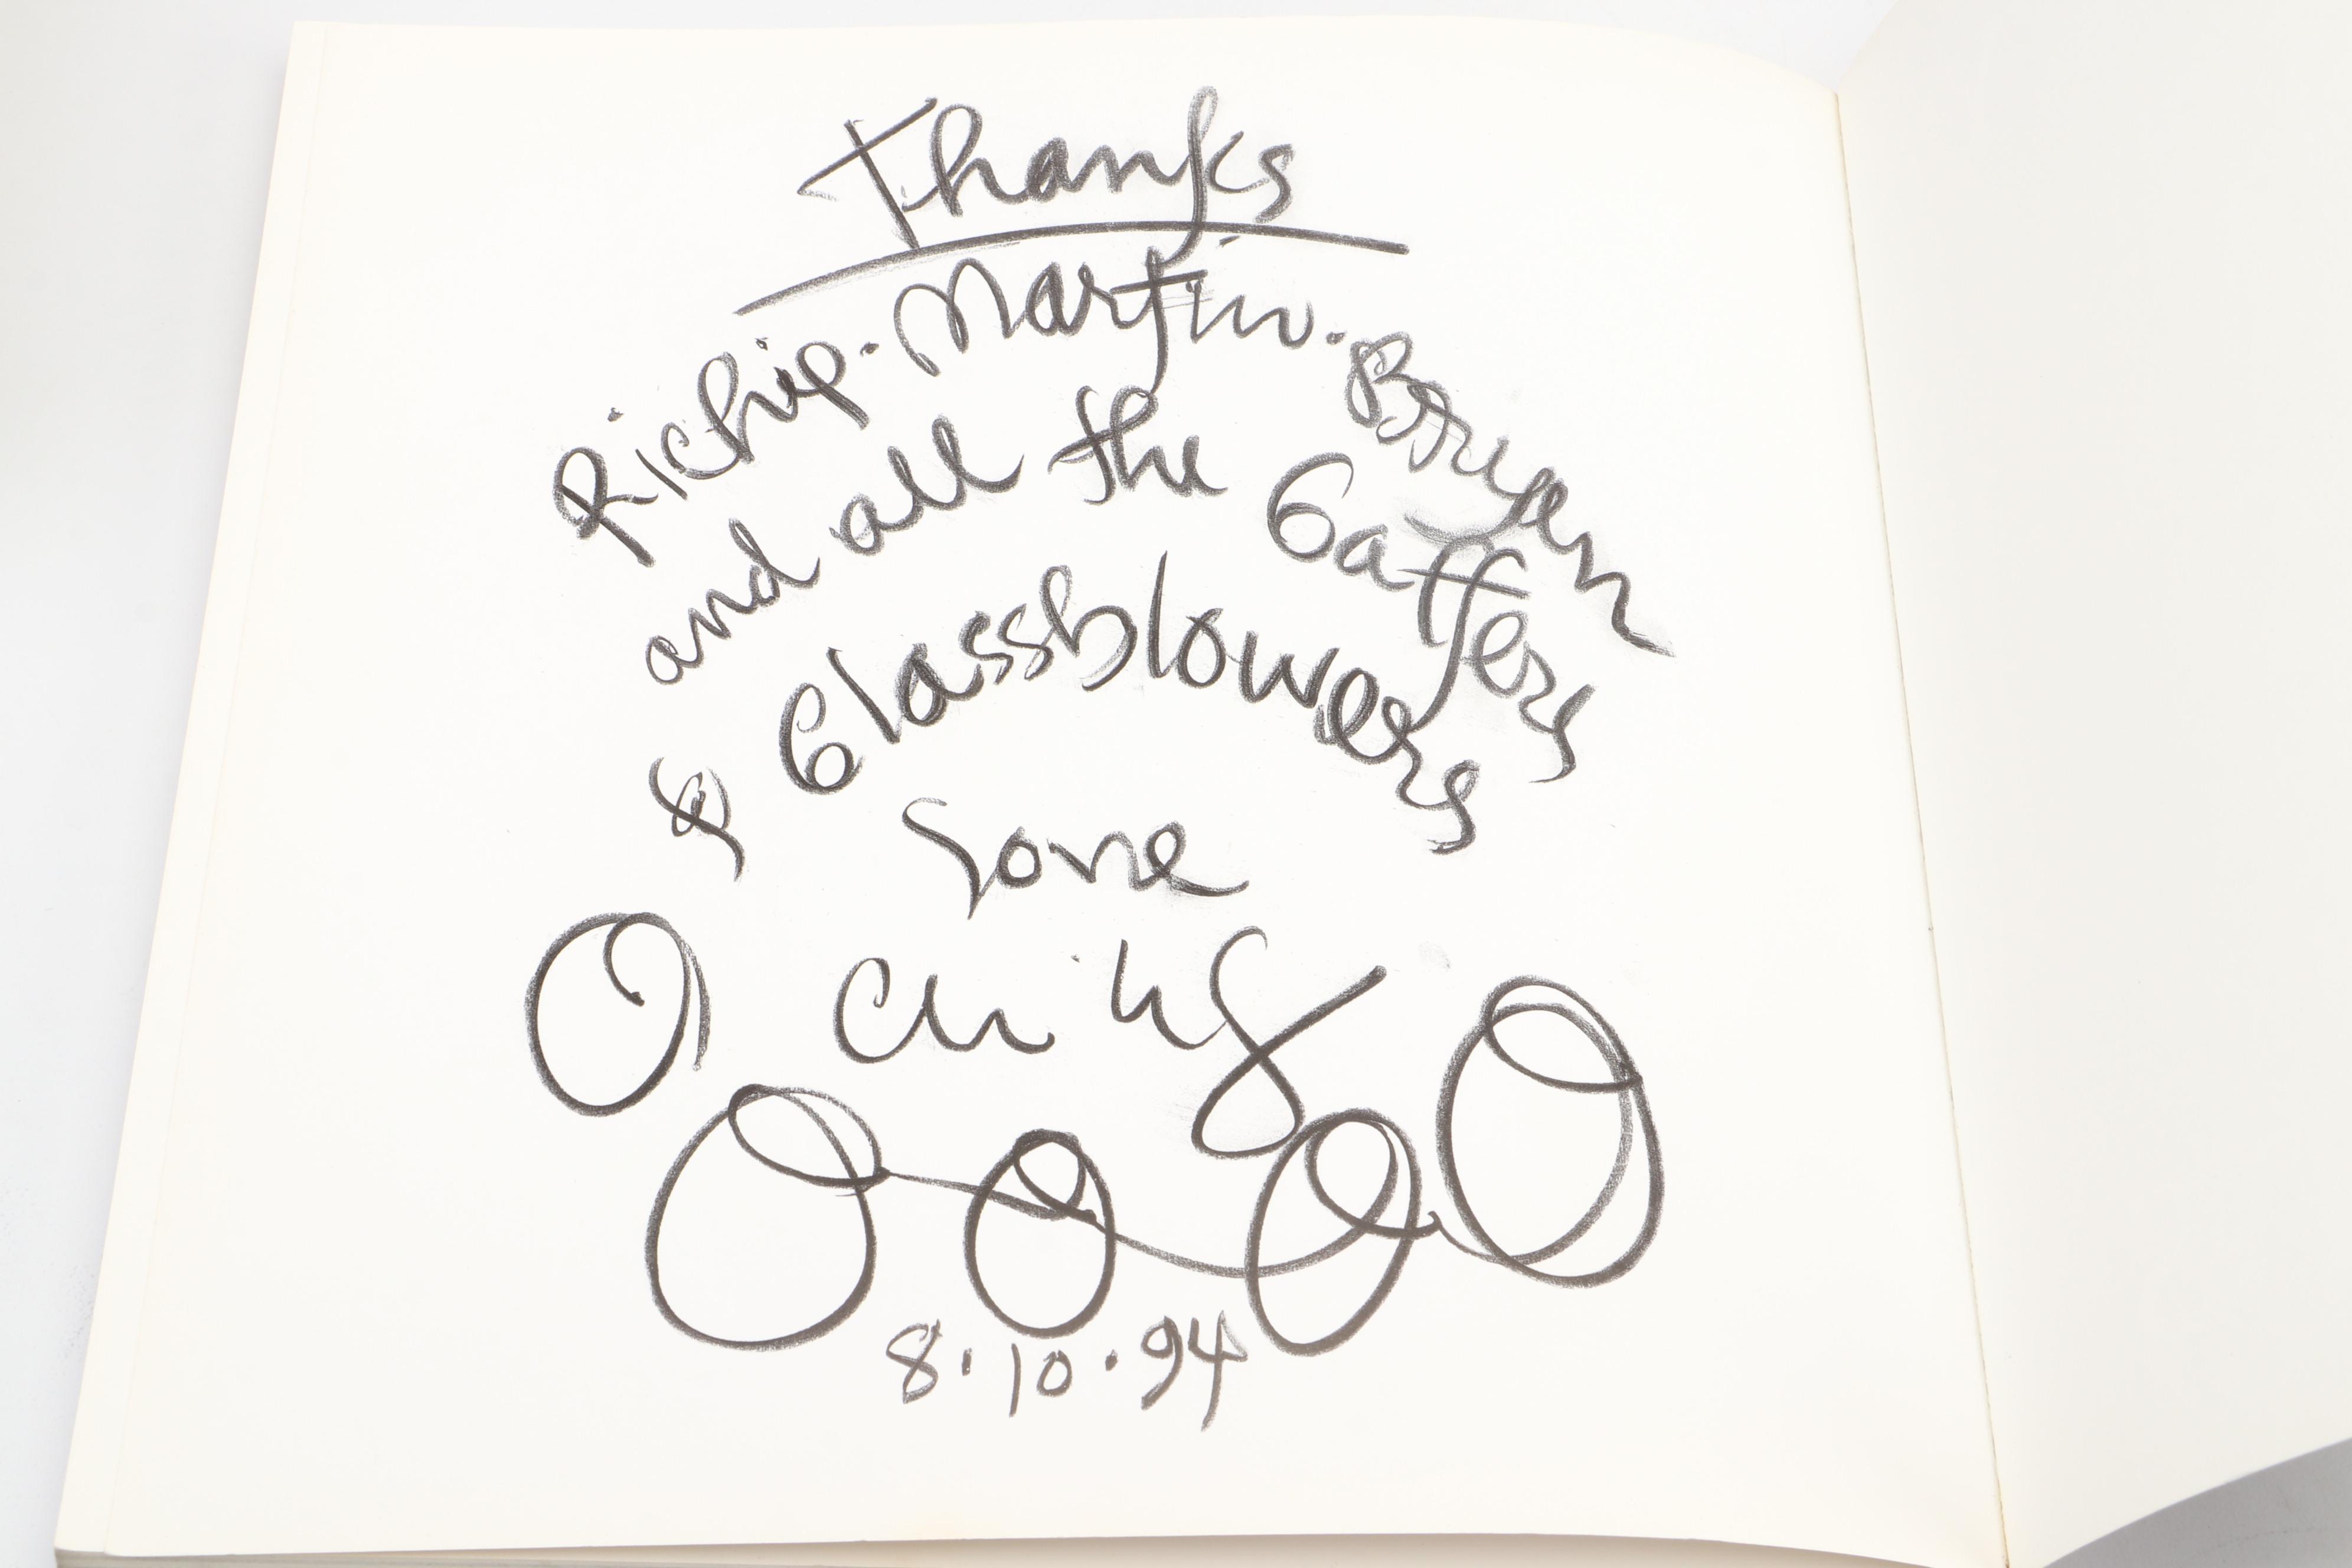 Thanks
Richip. Martin. Brian
and all the Gaffers
& Glassblowers
Love
8.10.94